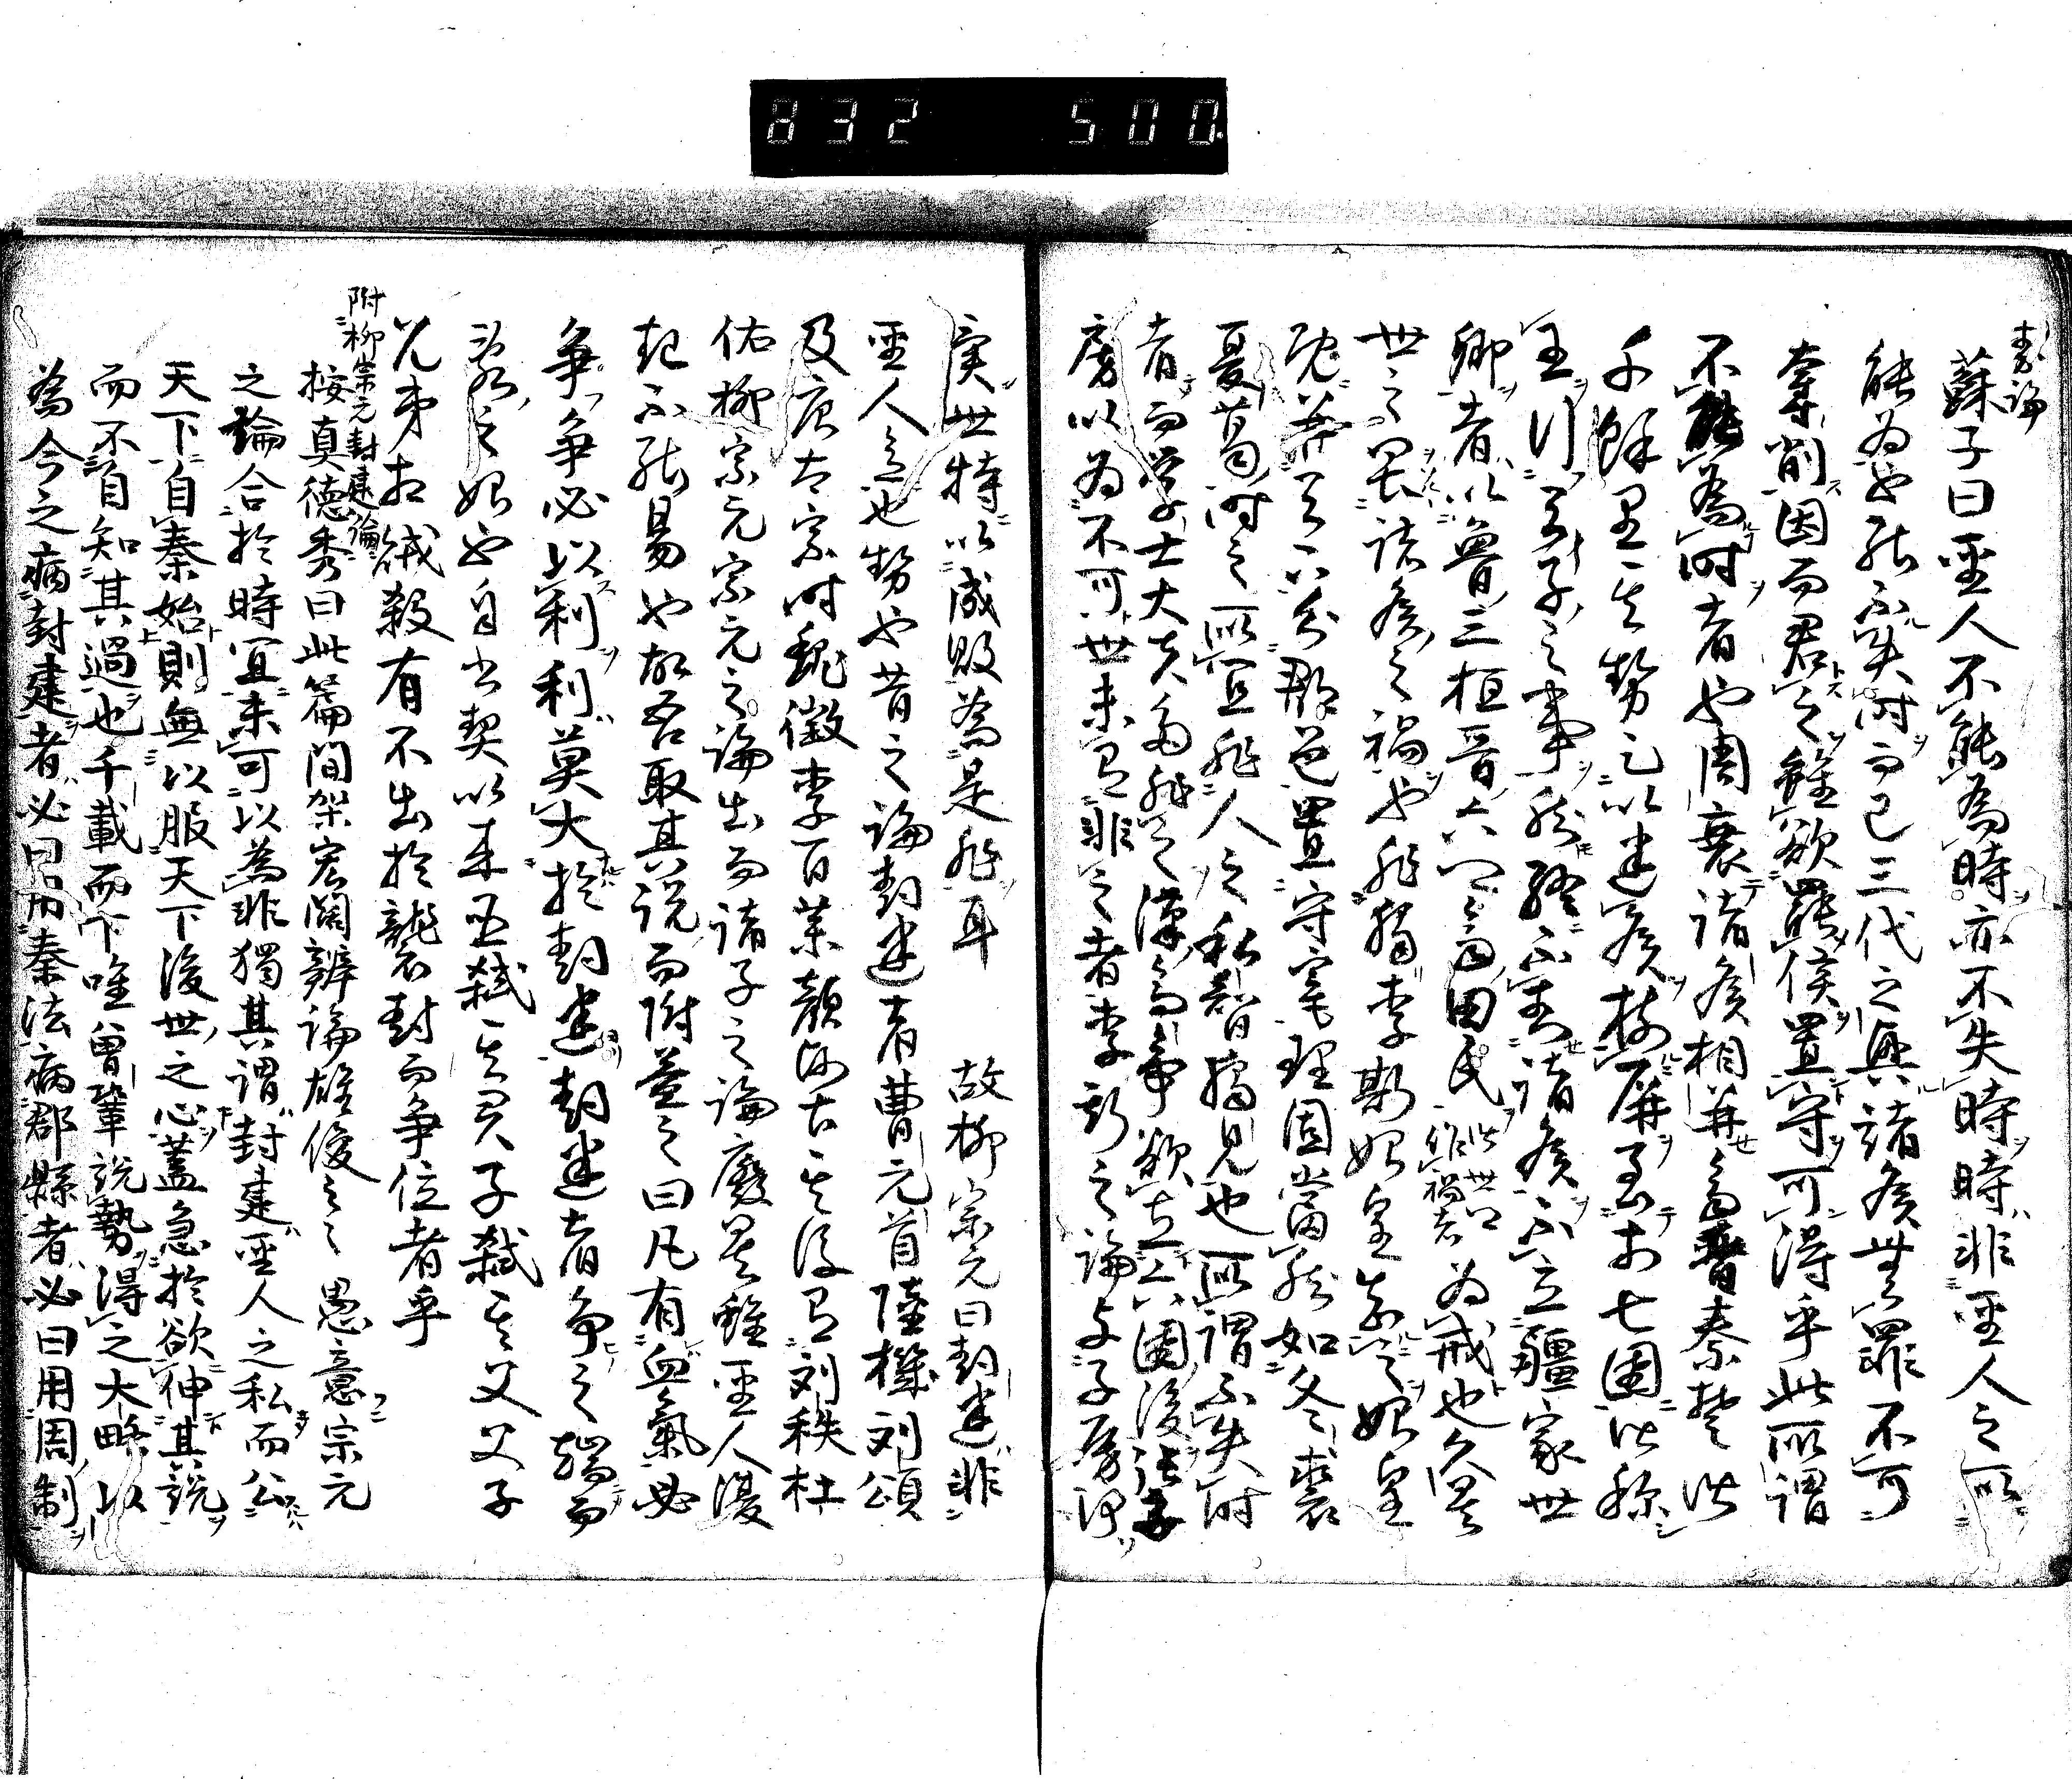 秦論
蘇子曰聖人不能為時亦不失時時非聖人之所
能為也能不失時而已三代之興諸侯無罪不可
奪削因而君之雖欲罷侯置守可得乎此所謂
不能為時者也周衰諸侯相并齊晉秦楚皆
千餘里其勢足以建侯樹屏至於七国皆称
王行天子之事然終不封諸侯不立疆家世
卿者以魯三桓晉六卿齊田氏為戒也久矣
世之畏諸侯之禍也非独李斯始皇知之始皇
既并天下分郡邑置守宰理固當然如冬裘
夏葛時之所宜非人之私智独見也所謂不失時
者而学士大夫多非之漢高帝欲立六国後張子
房以為不可世未有非之者李斯之論与子房何
異世特以成敗為是非耳 故柳宗元曰封建非
聖人意也勢也昔之論封建者曹元首陸機刘頌
及唐太宗時魏徵李百薬顔師古其後有刘秩杜
佑柳宗元宗元之論出而諸子之論廢矣雖聖人復
起不能易也故吾取其説而附益之曰凡有血氣必
争争必以利利莫大於封建封建者争之端而
乱之始也自書契以来臣弑其君子弑其父父子
兄弟相賊殺有不出於襲封而争位者乎
附柳宗元封建論
按真徳秀曰此篇間架宏闊辨論雄俊云云 愚意宗元
之論合於時宜未可以為非獨其謂封建聖人之私而公
天下自秦始則無以服天下後世之心蓋急於欲神其説
而不自知其過也千載而下唯曾鞏説勢得之大略以
為今之病封建者必曰用秦法病郡縣者必曰用周制